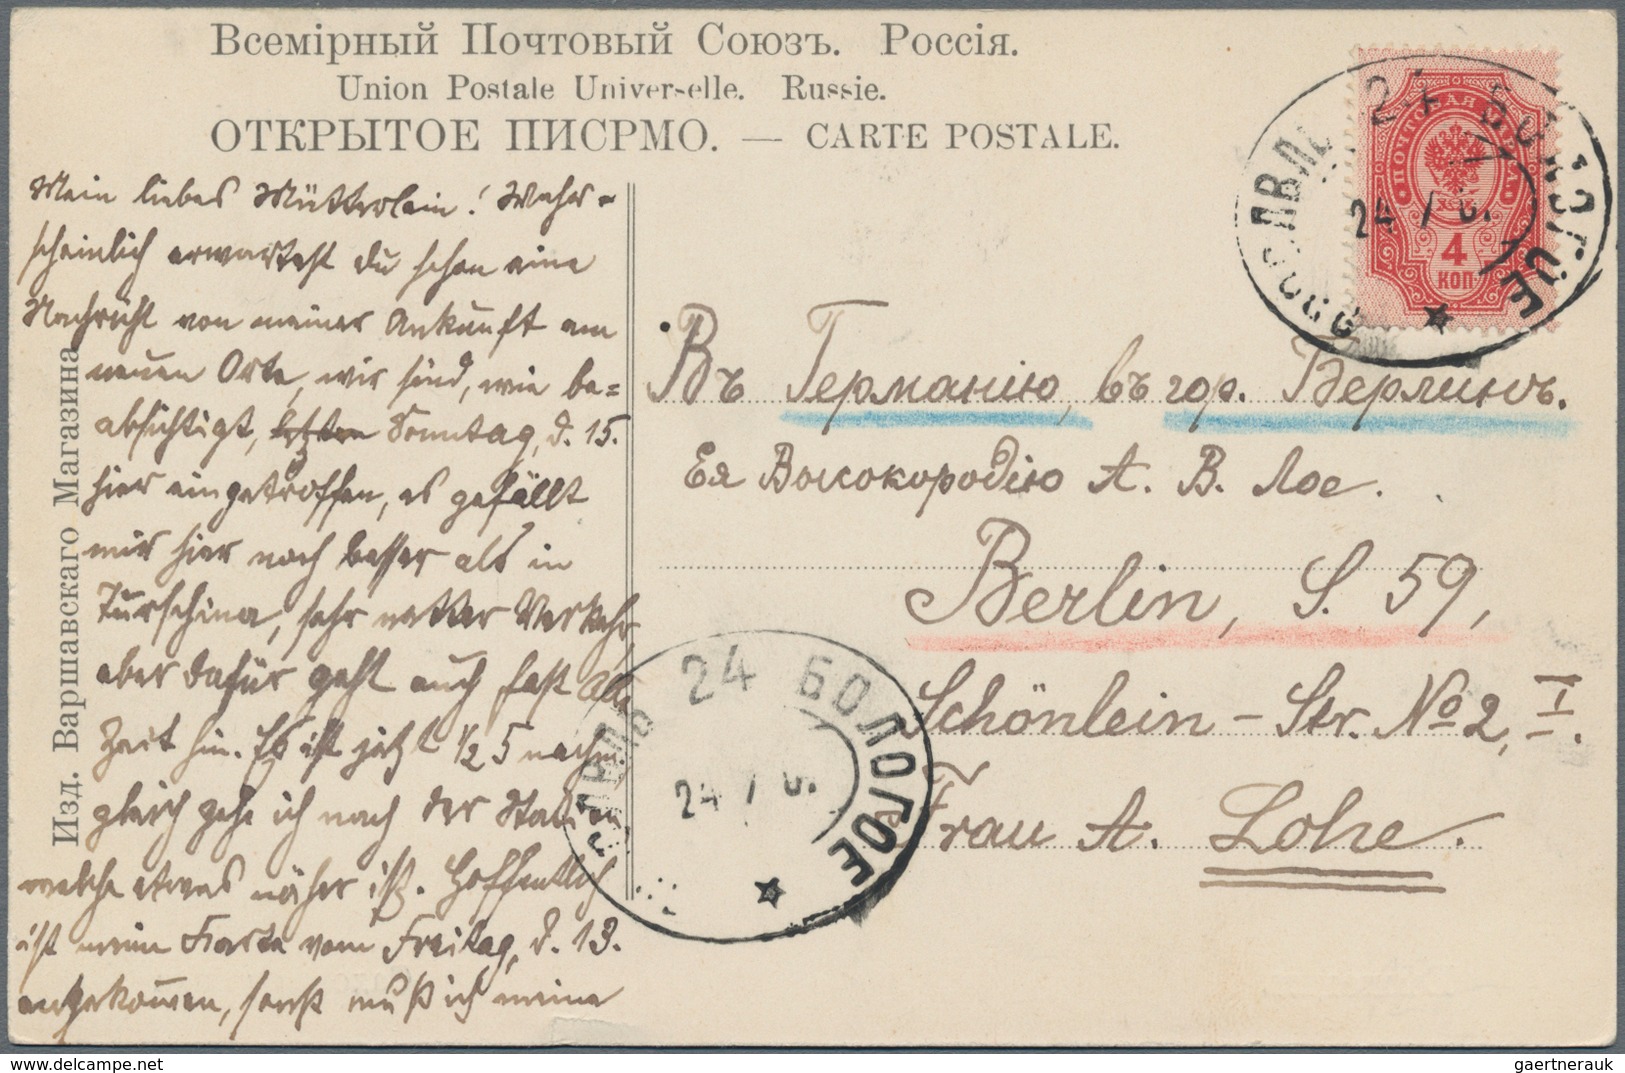 Всемірный Почтовый Союзъ. Россія.
Union Postale Universelle. Russie.
ОТКРЫТОЕ ПИСРМО. — CARTE POSTALE.
Изд. Варшавскаго Магазина
Mein liebes Mütterlein! Wahr-
scheinlich erwartest du schon eine
Nachricht von meiner Ankunft am
neuen Orte, wir sind, wie be=
absichtigt, letzten Sonntag, d. 15.
hier eingetroffen, es gefällt
mir hier noch besser als in
Turschina, sehr netter Verkehr,
aber dafür geht auch fast alle
Zeit hin. Es ist jetzt ½ 5 nachm.
gleich gehe ich nach der
welche etwas näher ist. Hoffentlich
ist meine Karte vom Freitag, d. 13.
angekommen, sonst muß ich meine
ПОЧТОВАЯ МАРКА
4
КОП
24 БОЛОГОЕ
24
Въ Германію, въ гор. Берлинъ.
Ея Высокородію А. В. Лое.
Berlin, S. 59,
Schönlein-Str. No 2, I.
Frau A. Lohe.
24 БОЛОГОЕ
24
www.delcampe.net
gaertnerauk